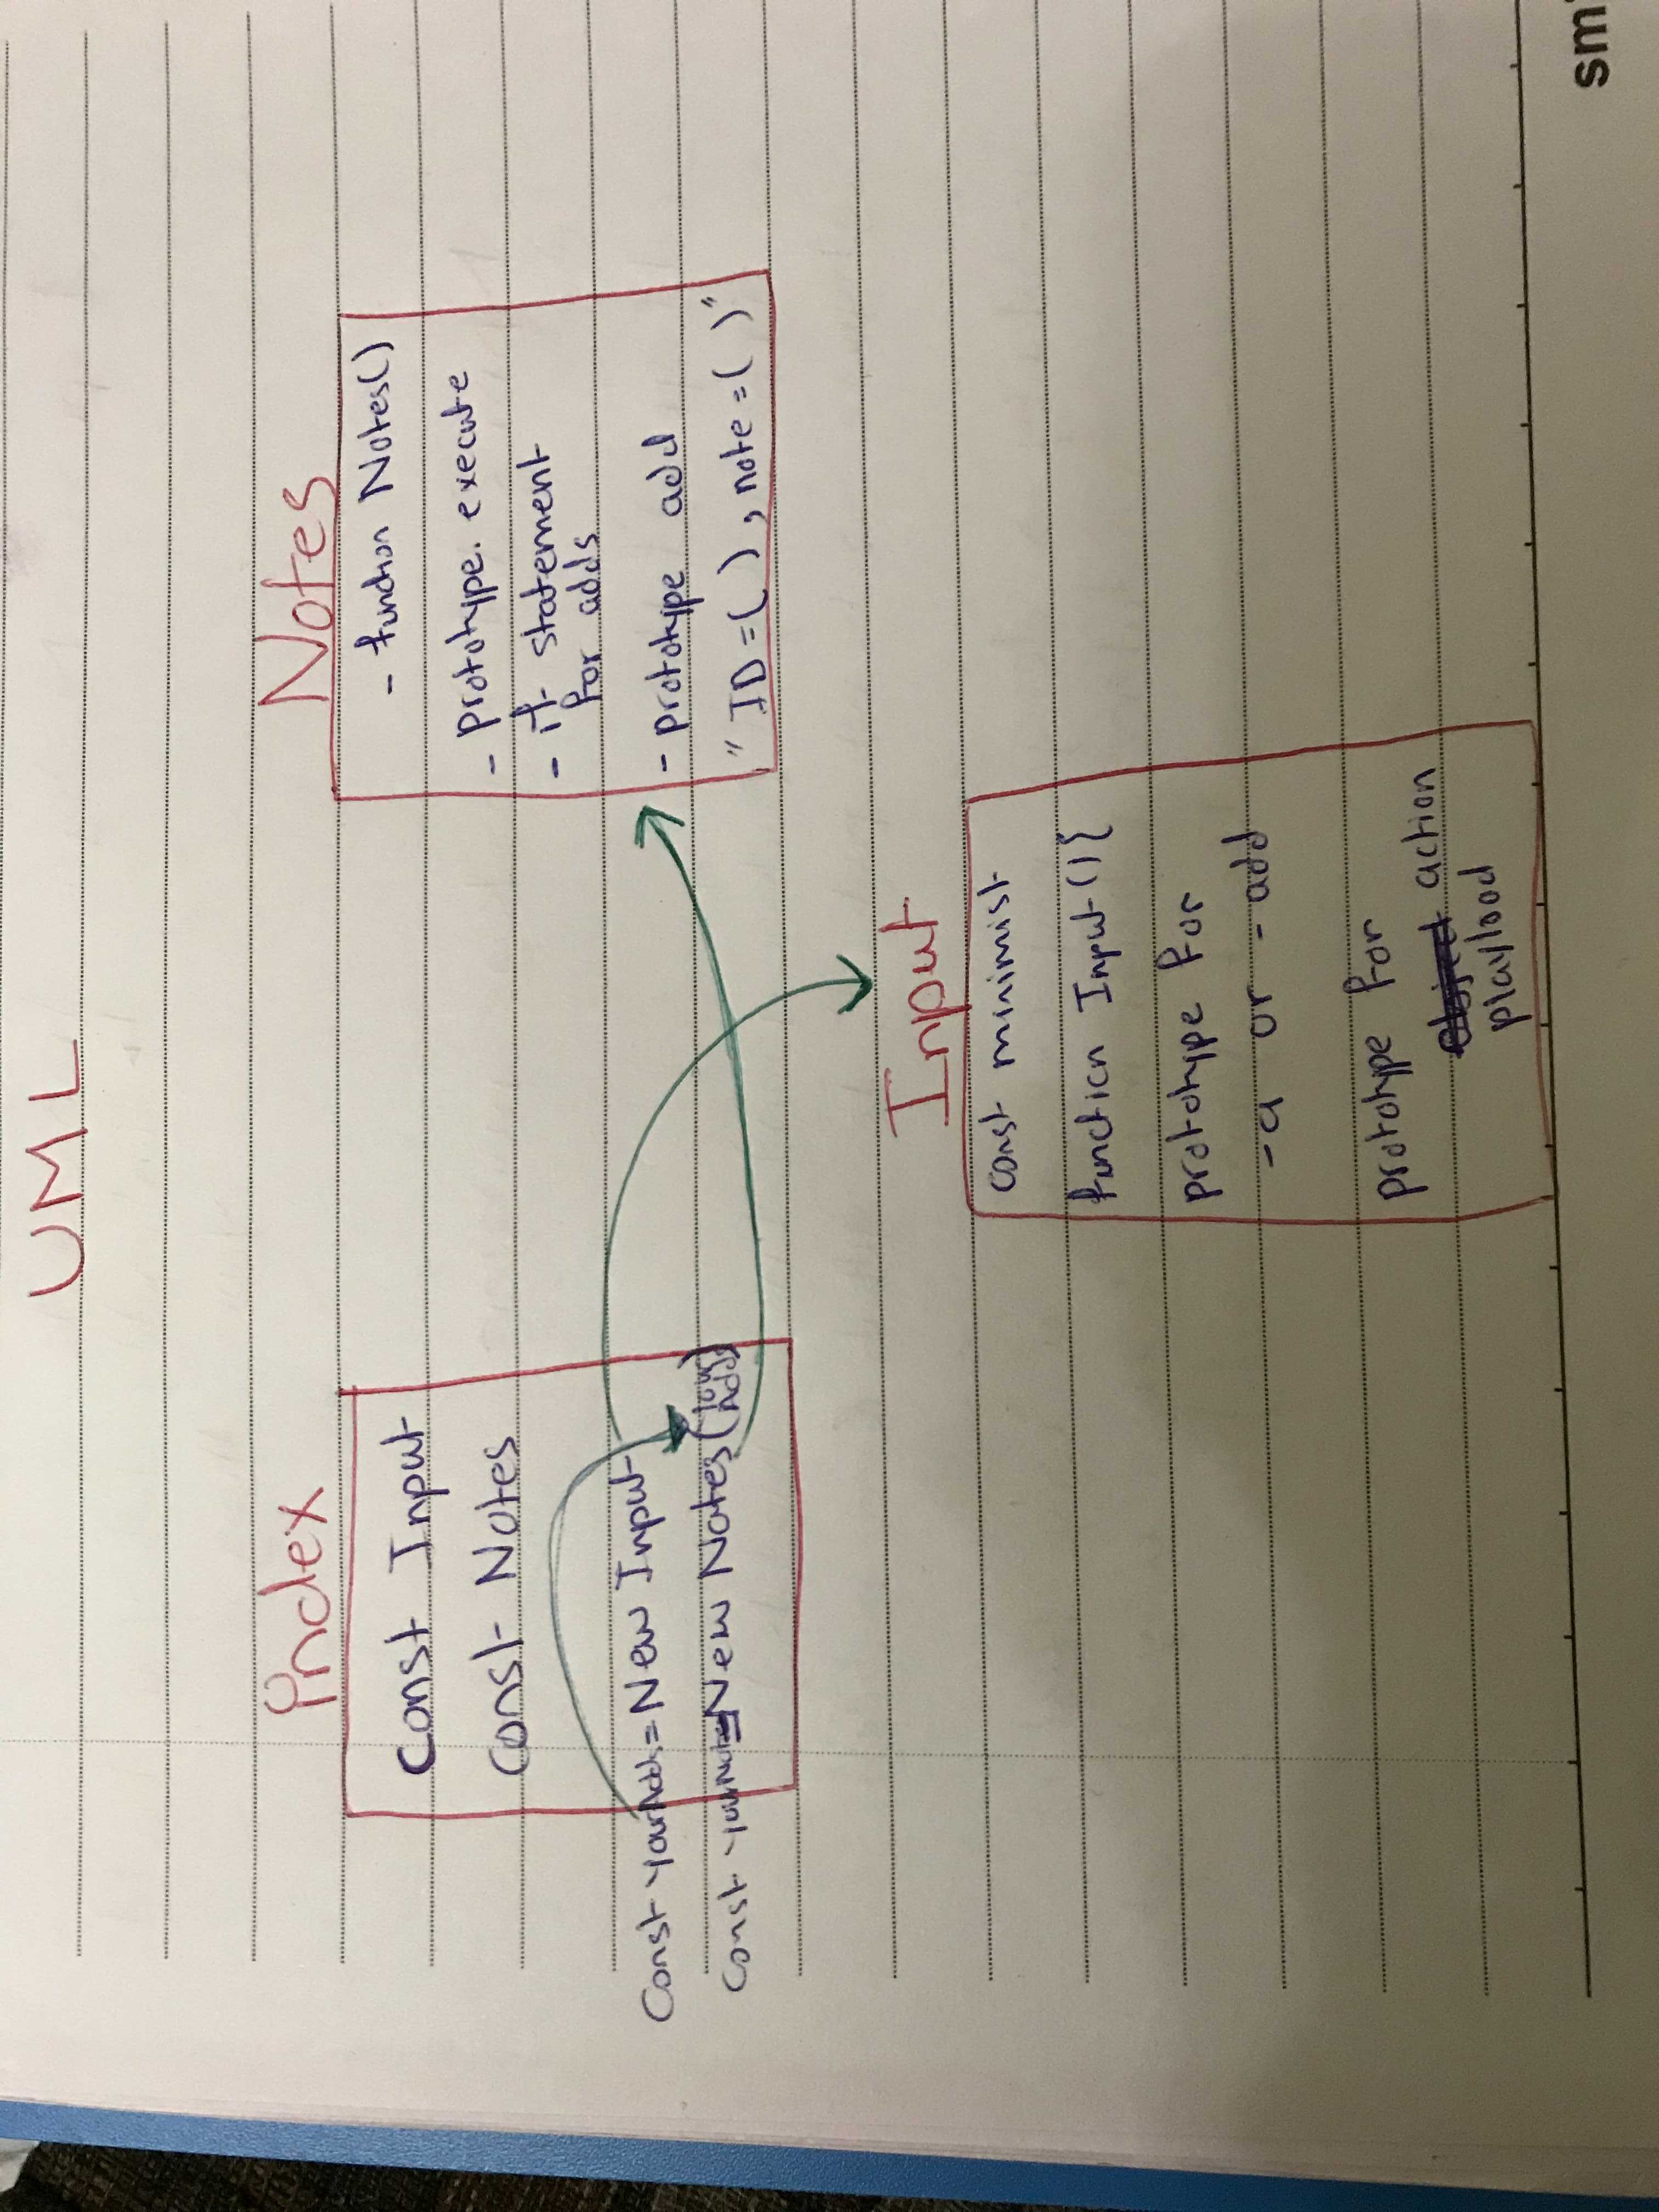 UML
index
Const Input
Const Notes
Const yourAdds = New Input
Const yourNotes = New Notes (your Adds)
Notes
- function Notes()
- prototype. execute
- if statement
for adds
- prototype add
" ID=( ), note=( )"
Input
const minimist
function Input(){
prototype for
-a or - add
prototype for
action
playload